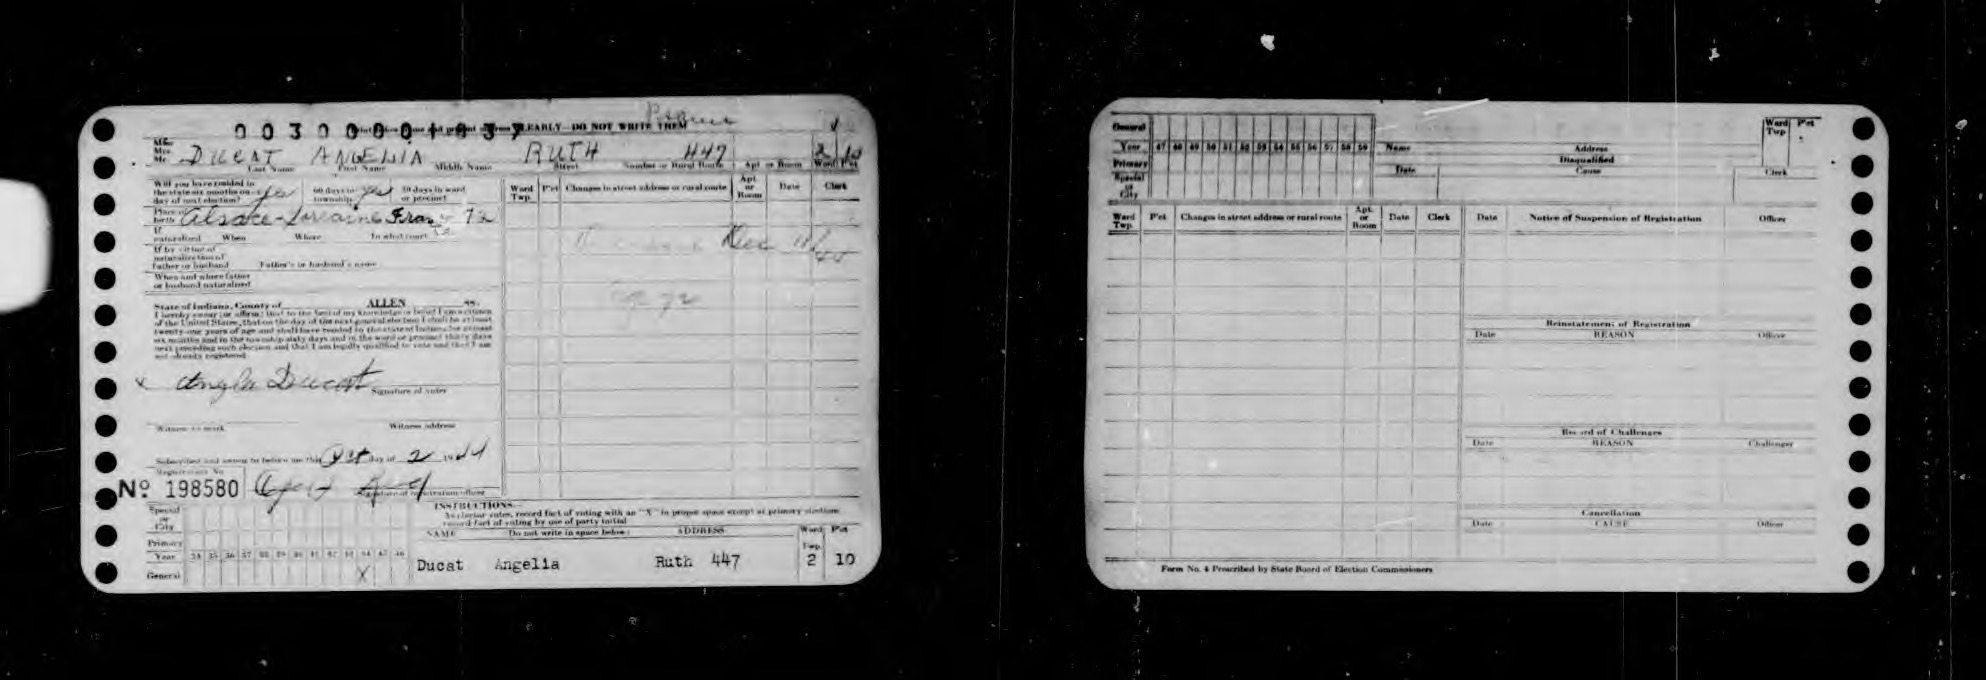 00300001937
CLEARLY—DO NOT WRITE THEM
Mr.
Mrs.
DUCAT ANGELIA RUTH 447 2 10
Last Name First Name Middle Name Street Number or Rural Route Apt. or Room Ward Pct
Will you have resided in
the state six months on yes 60 days in yes 30 days in ward
day of next election? township or precinct
Place of
birth Alsace-Lorraine France 72
If
naturalized When Where In what court
If by virtue of
naturalization of
Father or husband Father's or husband's name
When and where father
or husband naturalized
State of Indiana, County of ALLEN ss.
I hereby swear (or affirm) that to the best of my knowledge or belief I am a citizen
of the United States, that on the day of the next general election I shall be at least
twenty-one years of age and shall have resided in the state of Indiana for at least
six months and in the township sixty days and in the ward or precinct thirty days
next preceding such election and that I am legally qualified to vote and that I am
not already registered.
x Angela Ducat
Signature of voter
Witness to mark Witness address
Subscribed and sworn to before me this Oct day of 2 1944
Registration No.
No 198580
Signature of registration officer
Ward Twp. P'ct Changes in street address or rural route Apt. or Room Date Clerk
Dec 11/44
INSTRUCTIONS—
As elector votes, record fact of voting with an "X" in proper space except at primary elections
record fact of voting by use of party initial
Special
or
City
Primary
Year 34 35 36 37 38 39 40 41 42 43 44 45 46
General X
NAME Do not write in space below: ADDRESS Ward Twp. P'ct
Ducat Angelia Ruth 447 2 10
General
Year 47 48 49 50 51 52 53 54 55 56 57 58 59
Primary
Special
or
City
Name Address
Disqualified
Date Cause Clerk
Ward Twp P'ct
Ward Twp. P'ct Changes in street address or rural route Apt. or Room Date Clerk
Date Notice of Suspension of Registration Officer
Reinstatement of Registration
Date REASON Officer
Record of Challenges
Date REASON Challenger
Cancellation
Date CAUSE Officer
Form No. 4 Prescribed by State Board of Election Commissioners